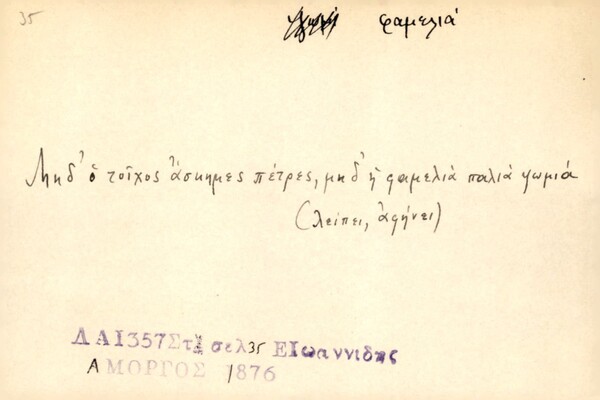 35
φαμελιά
Μηδ' ὁ τοῖχος ἄσκημες πέτρες, μηδ' ἡ φαμελιά παλιά ψωμιά
(λείπει, ἀφήνει)
ΛΑ 1357 σελ 35 ΕΙωαννιδης
ΑΜΟΡΓΟΣ 1876